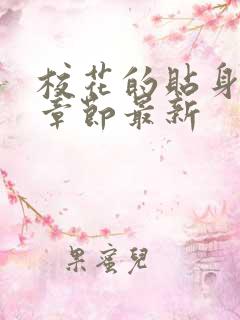 校花的貼身
章節最新
果蜜兒